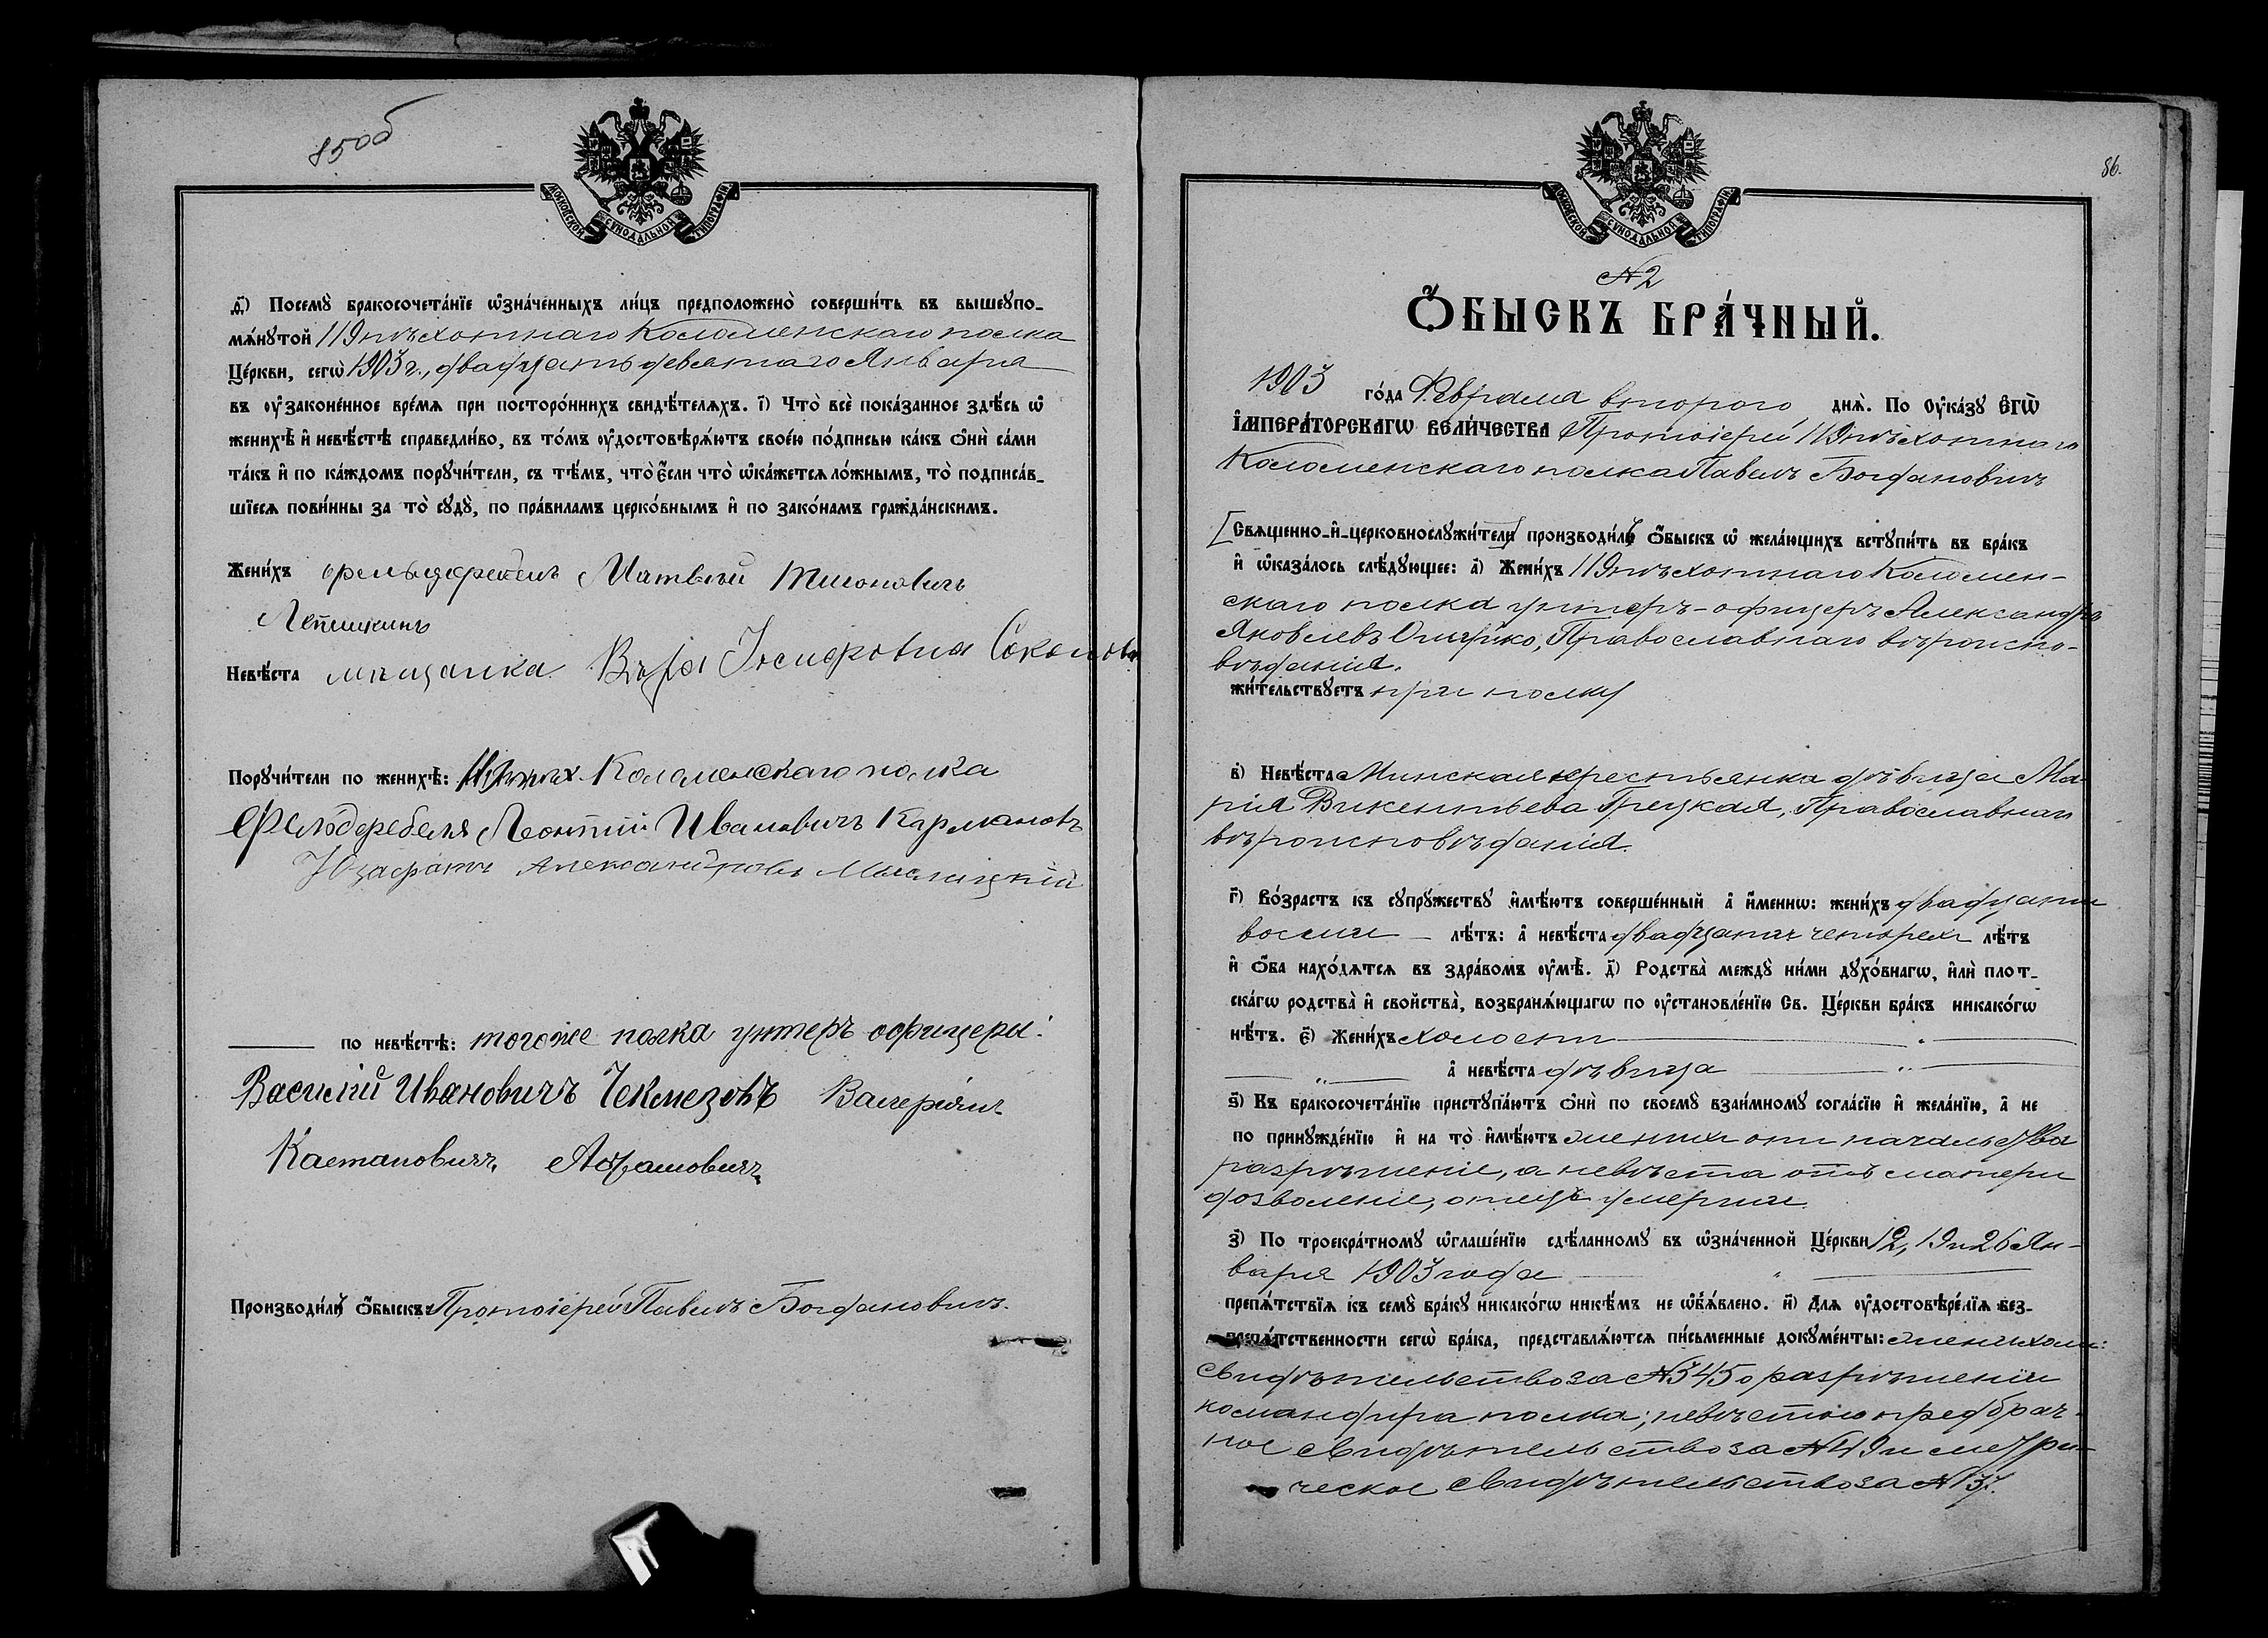 85об
МОСКОВСКОЙ СѴНОДАЛЬНОЙ ТИПОГРАФІИ
д҃і) Посемꙋ̀ бракосочета́нїе ѡ҆зна́ченныхъ ли́цъ предположено̀ соверши́ть въ вышеꙋпо-
мѧ́нꙋтой 119 пѣхотнаго Коломенскаго полка
Це́ркви, сегѡ̀ 1903 г., двадцать девятаго Января
въ ᲂу҆зако́ненное вре́мѧ при посторо́ннихъ свидѣ́телѧхъ. і҃) Что̀ всѐ пока́занное здѣ́сь ѡ҆
женихѣ̀ и҆ невѣ́стѣ справедли́во, въ то́мъ ᲂу҆достовѣрѧ́ютъ свое́ю по́дписью ка́къ ѻ҆нѝ са́ми
та́къ и҆ по ка́ждомъ порꙋчи́тели, съ тѣ́мъ, что̀ є҆́сли что̀ ѡ҆ка́жетсѧ ло́жнымъ, то̀ подписа́в-
шїесѧ пови́нны за то̀ сꙋдꙋ̀, по пра́виламъ церко́внымъ и҆ по зако́намъ гражда́нскимъ.
Жени́хъ фельдфебель Матвѣй Тихоновичъ
Лепишкинъ
Невѣ́ста мѣщанка Вѣра Іосифовна Соколова
Порꙋчи́тели по женихѣ̀: Коломенскаго полка
Фельдфебеля Леонтій Ивановичъ Кармановъ
Александровъ
по невѣ́стѣ: тогоже полка унтеръ офицеры:
Василій Ивановичъ Чекмезовъ Валеріянъ
Каетановичъ Абрамовичъ
Производи́лъ ѻ҆́быскъ Протоіерей Павелъ Богдановичъ.
86.
МОСКОВСКОЙ СѴНОДАЛЬНОЙ ТИПОГРАФІИ
№ 2
Ѻ҆́БЫСКЪ БРА́ЧНЫЙ.
1903 го́да Февраля второго днѧ̀. По Оу҆ка́зꙋ Є҆ГѠ̀
І҆МПЕРА́ТОРСКАГѠ ВЕЛИ́ЧЕСТВА Протоіерей 119 пѣхотнаго
Коломенскаго полка Павелъ Богдановичъ
[Свѧщенно-и҆-церковнослꙋжи́тели] производи́лъ ѻ҆́быскъ ѡ҆ жела́ющихъ встꙋпи́ть въ бра́къ
и҆ ѡ҆каза́лось слѣ́дꙋющее: а҃) Жени́хъ 119 пѣхотнаго Коломен-
скаго полка унтеръ-офицеръ Александръ
Яковлевъ Православнаго вѣроиспо-
вѣданія.
жи́тельствꙋетъ при полку
в҃) Невѣ́ста Минская крестьянка дѣвица Ма-
рія Викентьева Грецкая, Православнаго
вѣроисповѣданія.
г҃) Во́зрастъ къ сꙋпрꙋ́жествꙋ и҆мѣ́ютъ соверше́нный а҆ и҆́меннѡ: жени́хъ двадцати
восьми лѣ́тъ: а҆ невѣ́ста двадцати четырехъ лѣ́тъ
и҆ ѻ҆́ба нахо́дѧтсѧ въ здра́вомъ ᲂу҆мѣ̀. д҃) Родства̀ междꙋ̀ ни́ми дꙋхо́внагѡ, и҆лѝ плот-
ска́гѡ родства̀ и҆ свойства̀, возбранѧ́ющагѡ по ᲂу҆становле́нїю Св. Це́ркви бра́къ никако́гѡ
нѣ́тъ. є҃) Жени́хъ холостъ
а҆ невѣ́ста дѣвица
ѕ҃) Къ бракосочета́нїю пристꙋпа́ютъ ѻ҆нѝ по своемꙋ̀ взаи́мномꙋ согла́сїю и҆ жела́нїю, а҆ не
по принꙋжде́нїю и҆ на то̀ и҆мѣ́ютъ женихъ отъ начальства
разрѣшеніе, а невѣста отъ матери
дозволеніе, отецъ умерши.
з҃) По троекра́тномꙋ ѡ҆глаше́нїю сдѣ́ланномꙋ въ ѡ҆зна́ченной Це́ркви 12, 19 и 26 Ян-
варя 1903 года
препѧ́тствїѧ къ семꙋ̀ бра́кꙋ никако́гѡ никѣ́мъ не ѡ҆б̾ѧ́влено. и҃) Для ᲂу҆достовѣре́нїѧ без-
препѧ́тственности сегѡ̀ бра́ка, представлѧ́ютсѧ пи́сьменные докꙋме́нты: женихомъ:
свидѣтельство за № 345 о разрѣшеніи
командира полка; невѣстою предбрач-
ное свидѣтельство за № 49 и метри-
ческое свидѣтельство за № 137.